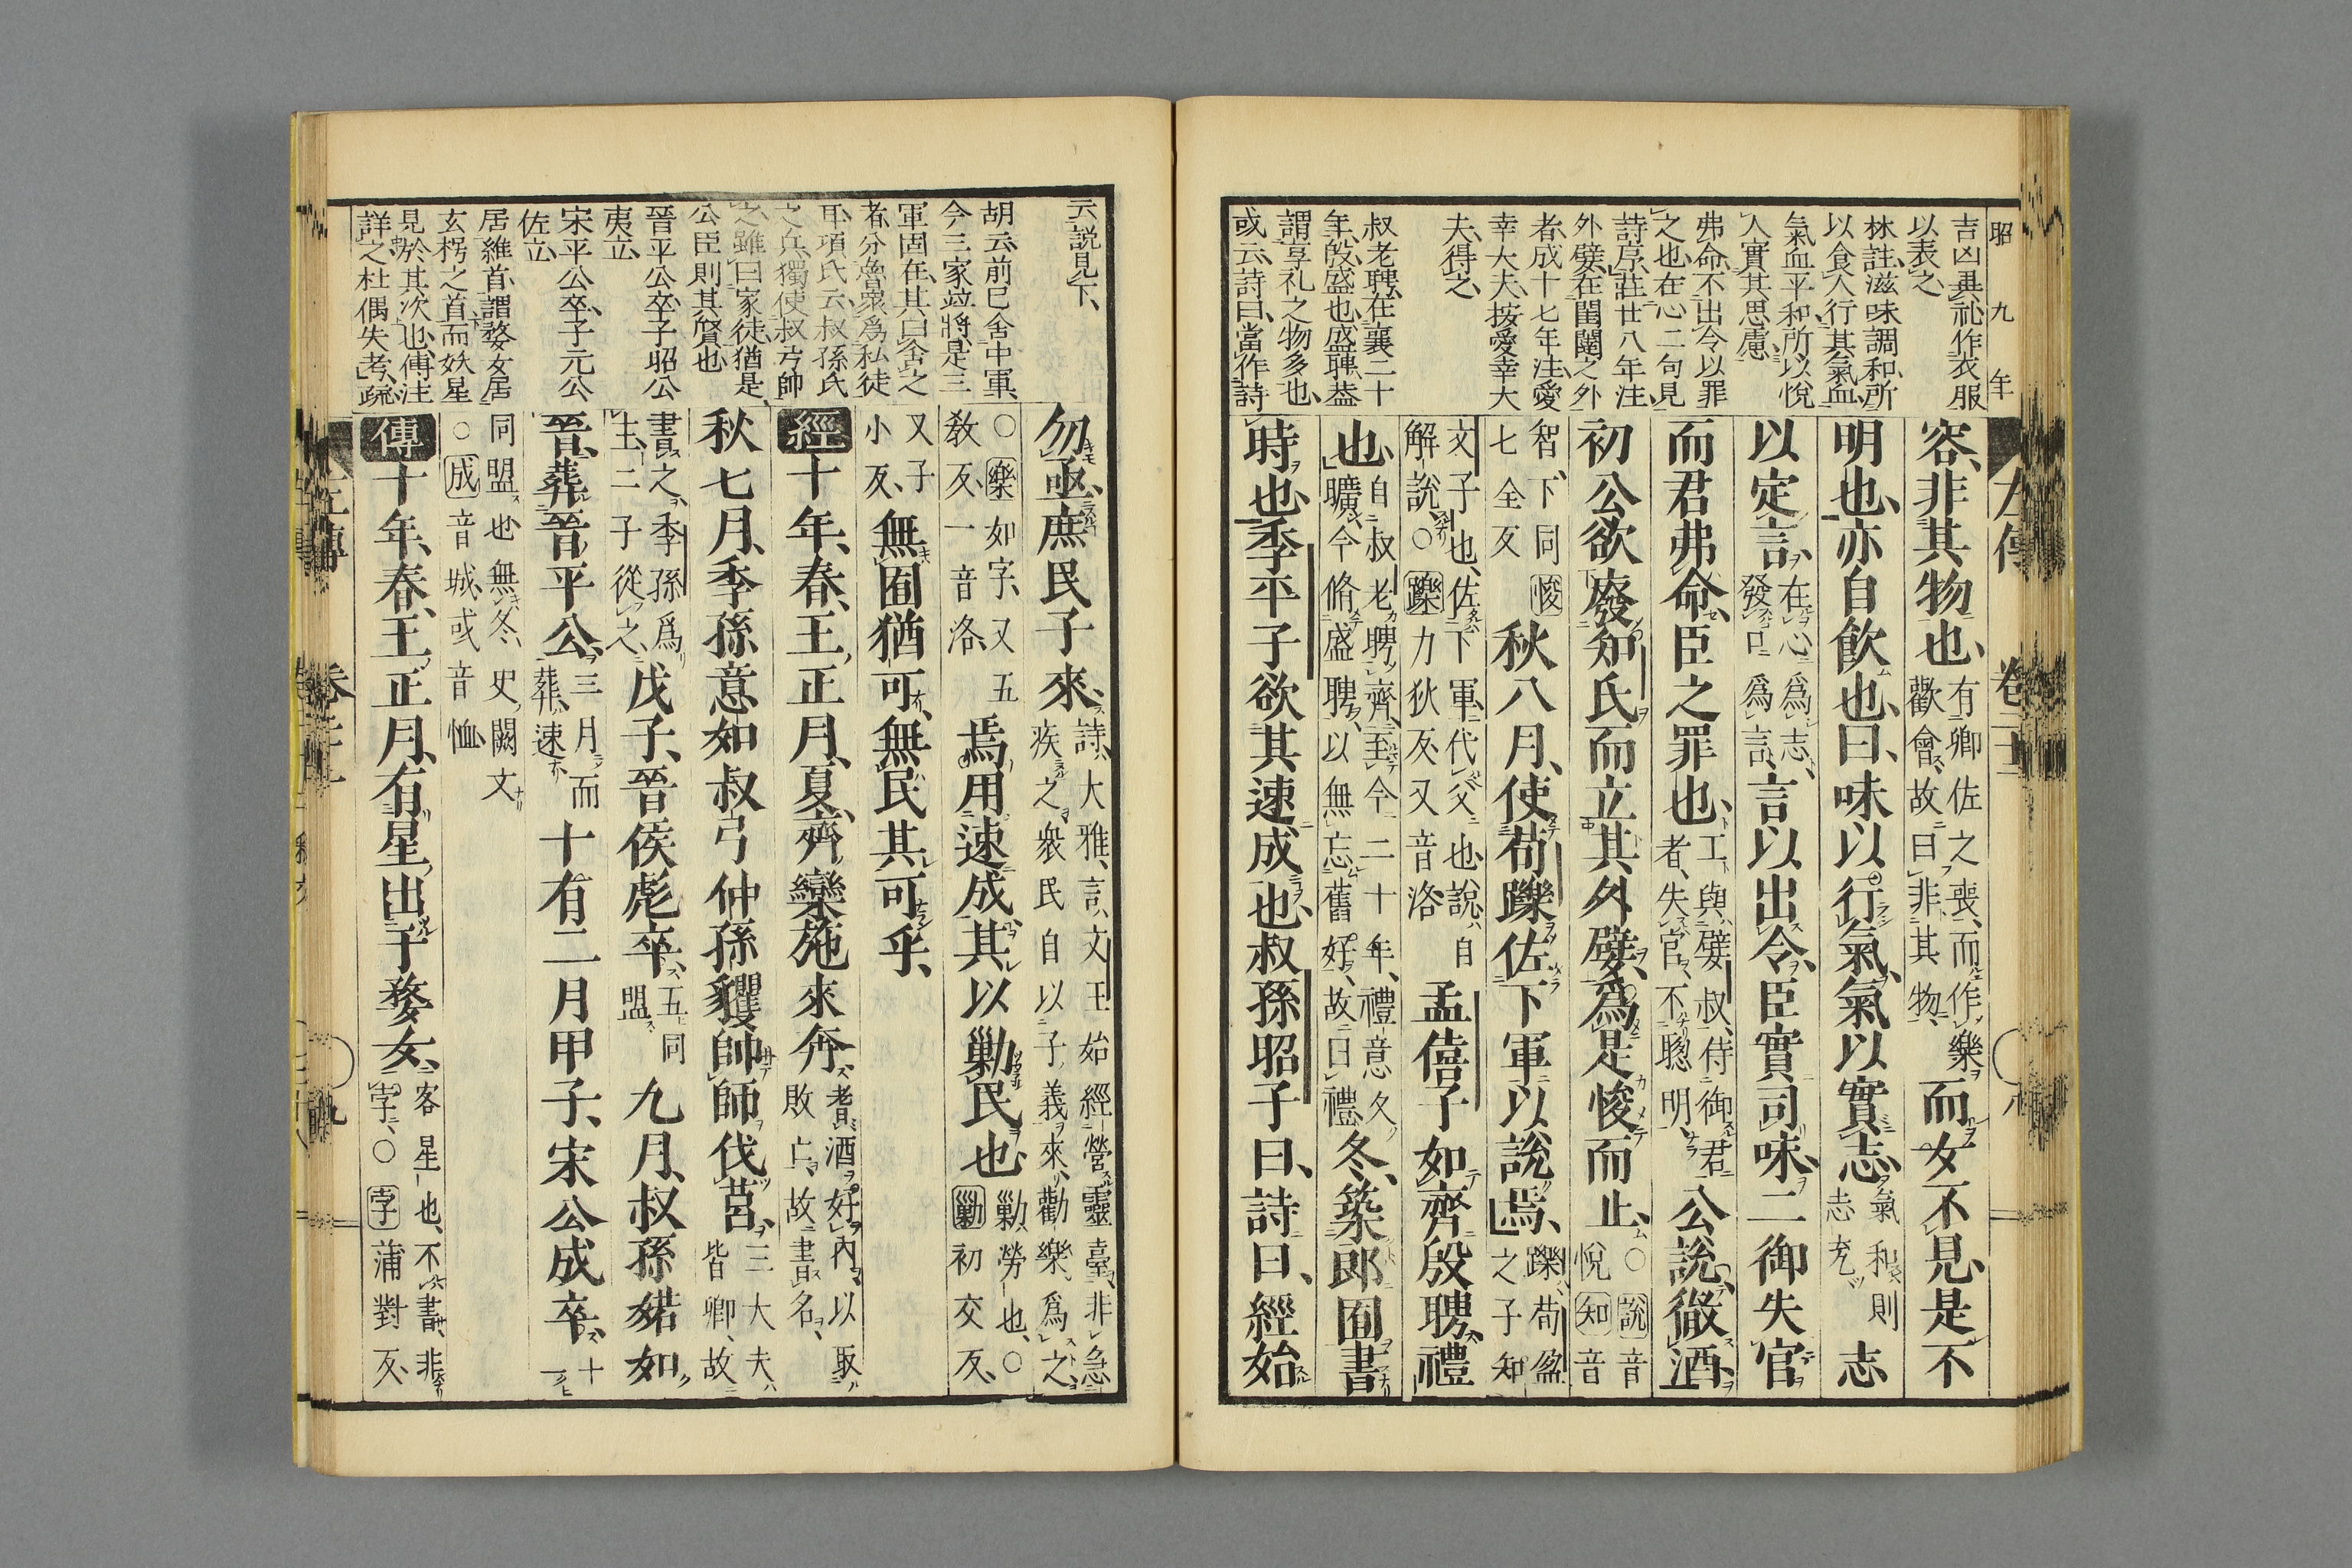 昭九年
吉凶異礼作衣服
以表之
林註滋味調和所
以食人行其氣血
氣血平和所以悅
人實其思慮
弗命不出令以罪
之也在心二句見
詩序莊廿八年注
外嬖在閨闥之外
者成十七年注愛
幸大夫按愛幸大
夫得之
叔老聘在襄二十
年殷盛也盛聘蓋
謂享礼之物多也
或云詩曰當作詩
左傳 卷二十二
容、非其物也、有卿佐之喪、而作樂歡會、故曰非其物、而女不見、是不
明也、亦自飲也、曰、味以行氣、氣以實志、氣和則志充志
以定言、在心爲志、發口爲言、言以出令、臣實司味、二御失官、
而君弗命、臣之罪也、工與嬖叔、侍御君者、失官不聰明、公說、徹酒、
初公欲廢知氏而立其外嬖、爲是悛而止、○說音悅知音
智下同悛七全反秋八月、使荀躒佐下軍以說焉、躒荀盈之子知
文子也、佐下軍、代父也、說自解說、○躒力狄反又音洛孟僖子如齊殷聘、禮
也、自叔老聘齊、至今二十年、禮意久曠、今脩盛聘、以無忘舊好、故曰禮、冬、築郎囿、書
時也、季平子欲其速成也、叔孫昭子曰、詩曰、經始
云說見下、
胡云前巳舍中軍
今三家竝將是三
軍固在其曰舍之
者分魯眾爲私徒
耳項氏云叔孫氏
之兵獨使叔弓帥
之雖曰家徒猶是
公臣則其賢也
晉平公卒子昭公
夷立
宋平公卒子元公
佐立
居維首謂婺女居
玄枵之首而妖星
見於其次也傳注
詳之杜偶失考疏
勿亟、庶民子來、詩大雅、言文王始經營靈臺、非急疾之、衆民自以子義來、勸樂爲之、
○樂如字、又五教反、一音洛、焉用速成、其以勦民也、勦、勞也、○勦初交反、
又子小反、無囿猶可、無民其可乎、
經十年、春、王正月、夏、齊欒施來奔、耆酒好內、以取敗亡、故書名、
秋七月、季孫意如叔弓仲孫貜帥師伐莒、三大夫皆卿、故
書之、季孫爲主、二子從之、戊子、晉侯彪卒、五同盟、九月、叔孫婼如
晉、葬晉平公、三月而葬、速、十有二月甲子、宋公成卒、十一
同盟也無冬、史闕文○成音城、或音恤
傳十年、春、王正月、有星出于婺女、客星也、不書、非孛、○孛蒲對反、